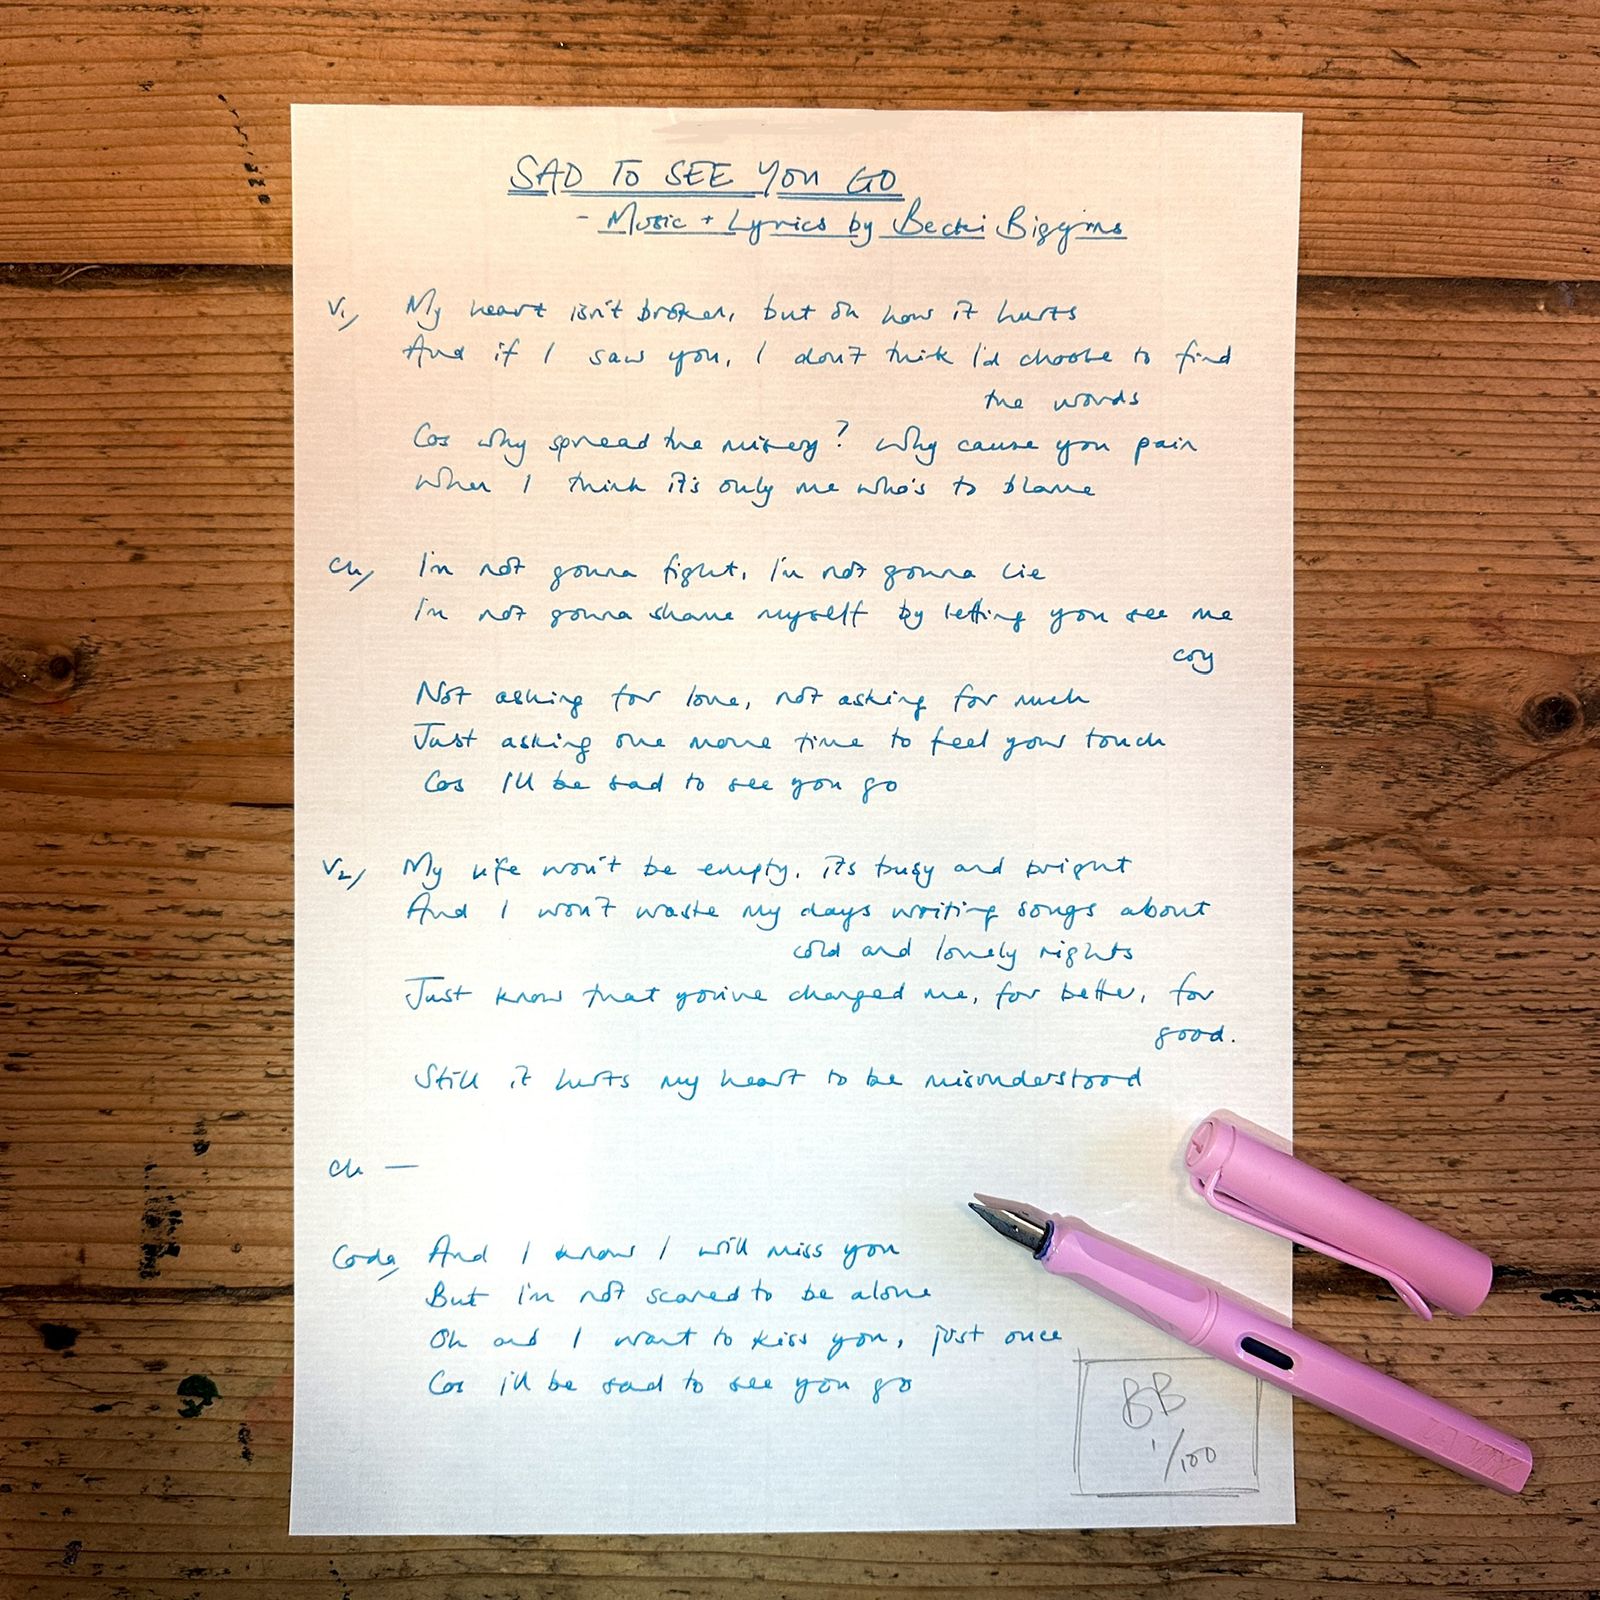 SAD TO SEE YOU GO
- Music + Lyrics by Becki Biggins
V1, My heart isn't broken, but oh how it hurts
And if I saw you, I don't think I'd choose to find
the words
Cos why spread the misery? Why cause you pain
When I think it's only me who's to blame
Ch, I'm not gonna fight, I'm not gonna lie
I'm not gonna shame myself by letting you see me
cry
Not asking for love, not asking for much
Just asking one more time to feel your touch
Cos I'll be sad to see you go
V2, My life won't be empty, it's busy and bright
And I won't waste my days writing songs about
cold and lonely nights
Just know that you've changed me, for better, for
good.
Still it hurts my heart to be misunderstood
Ch —
Coda, And I know I will miss you
But I'm not scared to be alone
Oh and I want to kiss you, just once
Cos i'll be sad to see you go
BB
1/100
LAMY